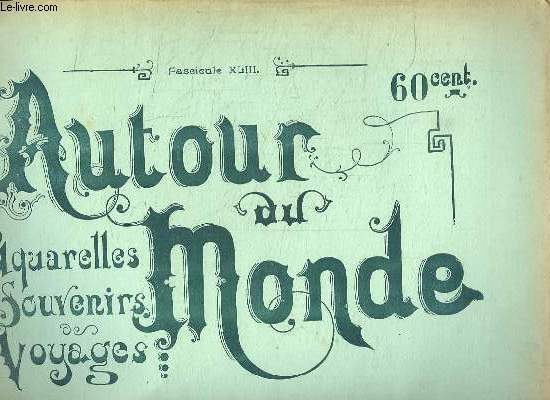 Le-livre.com
Fascicule XLIII.
60 cent.
Autour
du
Monde
Aquarelles
Souvenirs
DE
Voyages